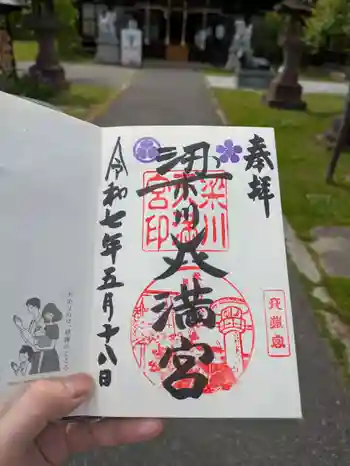 奉拝
梁川天満宮
梁川
天満
宮印
令和七年五月十八日